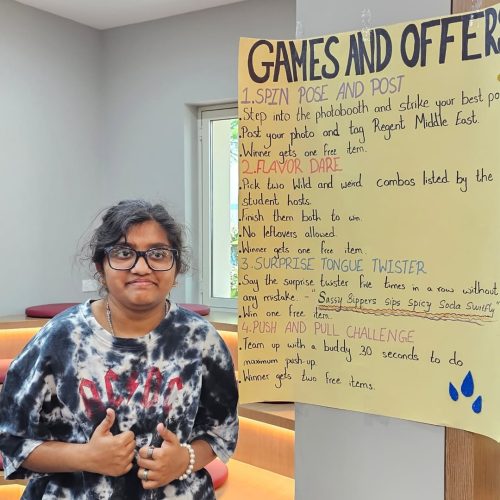 GAMES AND OFFERS
1.SPIN POSE AND POST
.Step into the photobooth and strike your best po
.Post your photo and tag Regent Middle East.
.Winner gets one free item.
2.FLAVOR DARE
.Pick two Wild and weird combos listed by the
student hosts.
.Finish them both to win.
.No leftovers allowed.
.Winner gets one free item.
3.SURPRISE TONGUE TWISTER
.Say the surprise twister five times in a row without
any mistake. - "Sassy Bippers sips Spicy Soda Swiftly
.Win one free item.
4.PUSH AND PULL CHALLENGE
.Team up with a buddy 30 seconds to do
maximum push-up.
.Winner gets two free items.
AC/DC